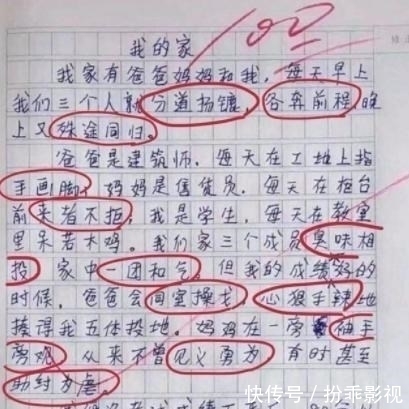 我的家
我家有爸爸妈妈和我，每天早上
我们三个人就分道扬镳，各奔前程，晚
上又殊途同归。
爸爸是建筑师，每天在工地上指
手画脚；妈妈是售货员，每天在柜台
前来者不拒；我是学生，每天在教室
里呆若木鸡。我们家三个成员臭味相
投，家中一团和气。但我的成绩不好的
时候，爸爸会同室操戈，心狠手辣地
揍得我五体投地。妈妈在一旁袖手
旁观，从来不曾见义勇为，有时甚至
助纣为虐。
快传号/扮乖影视